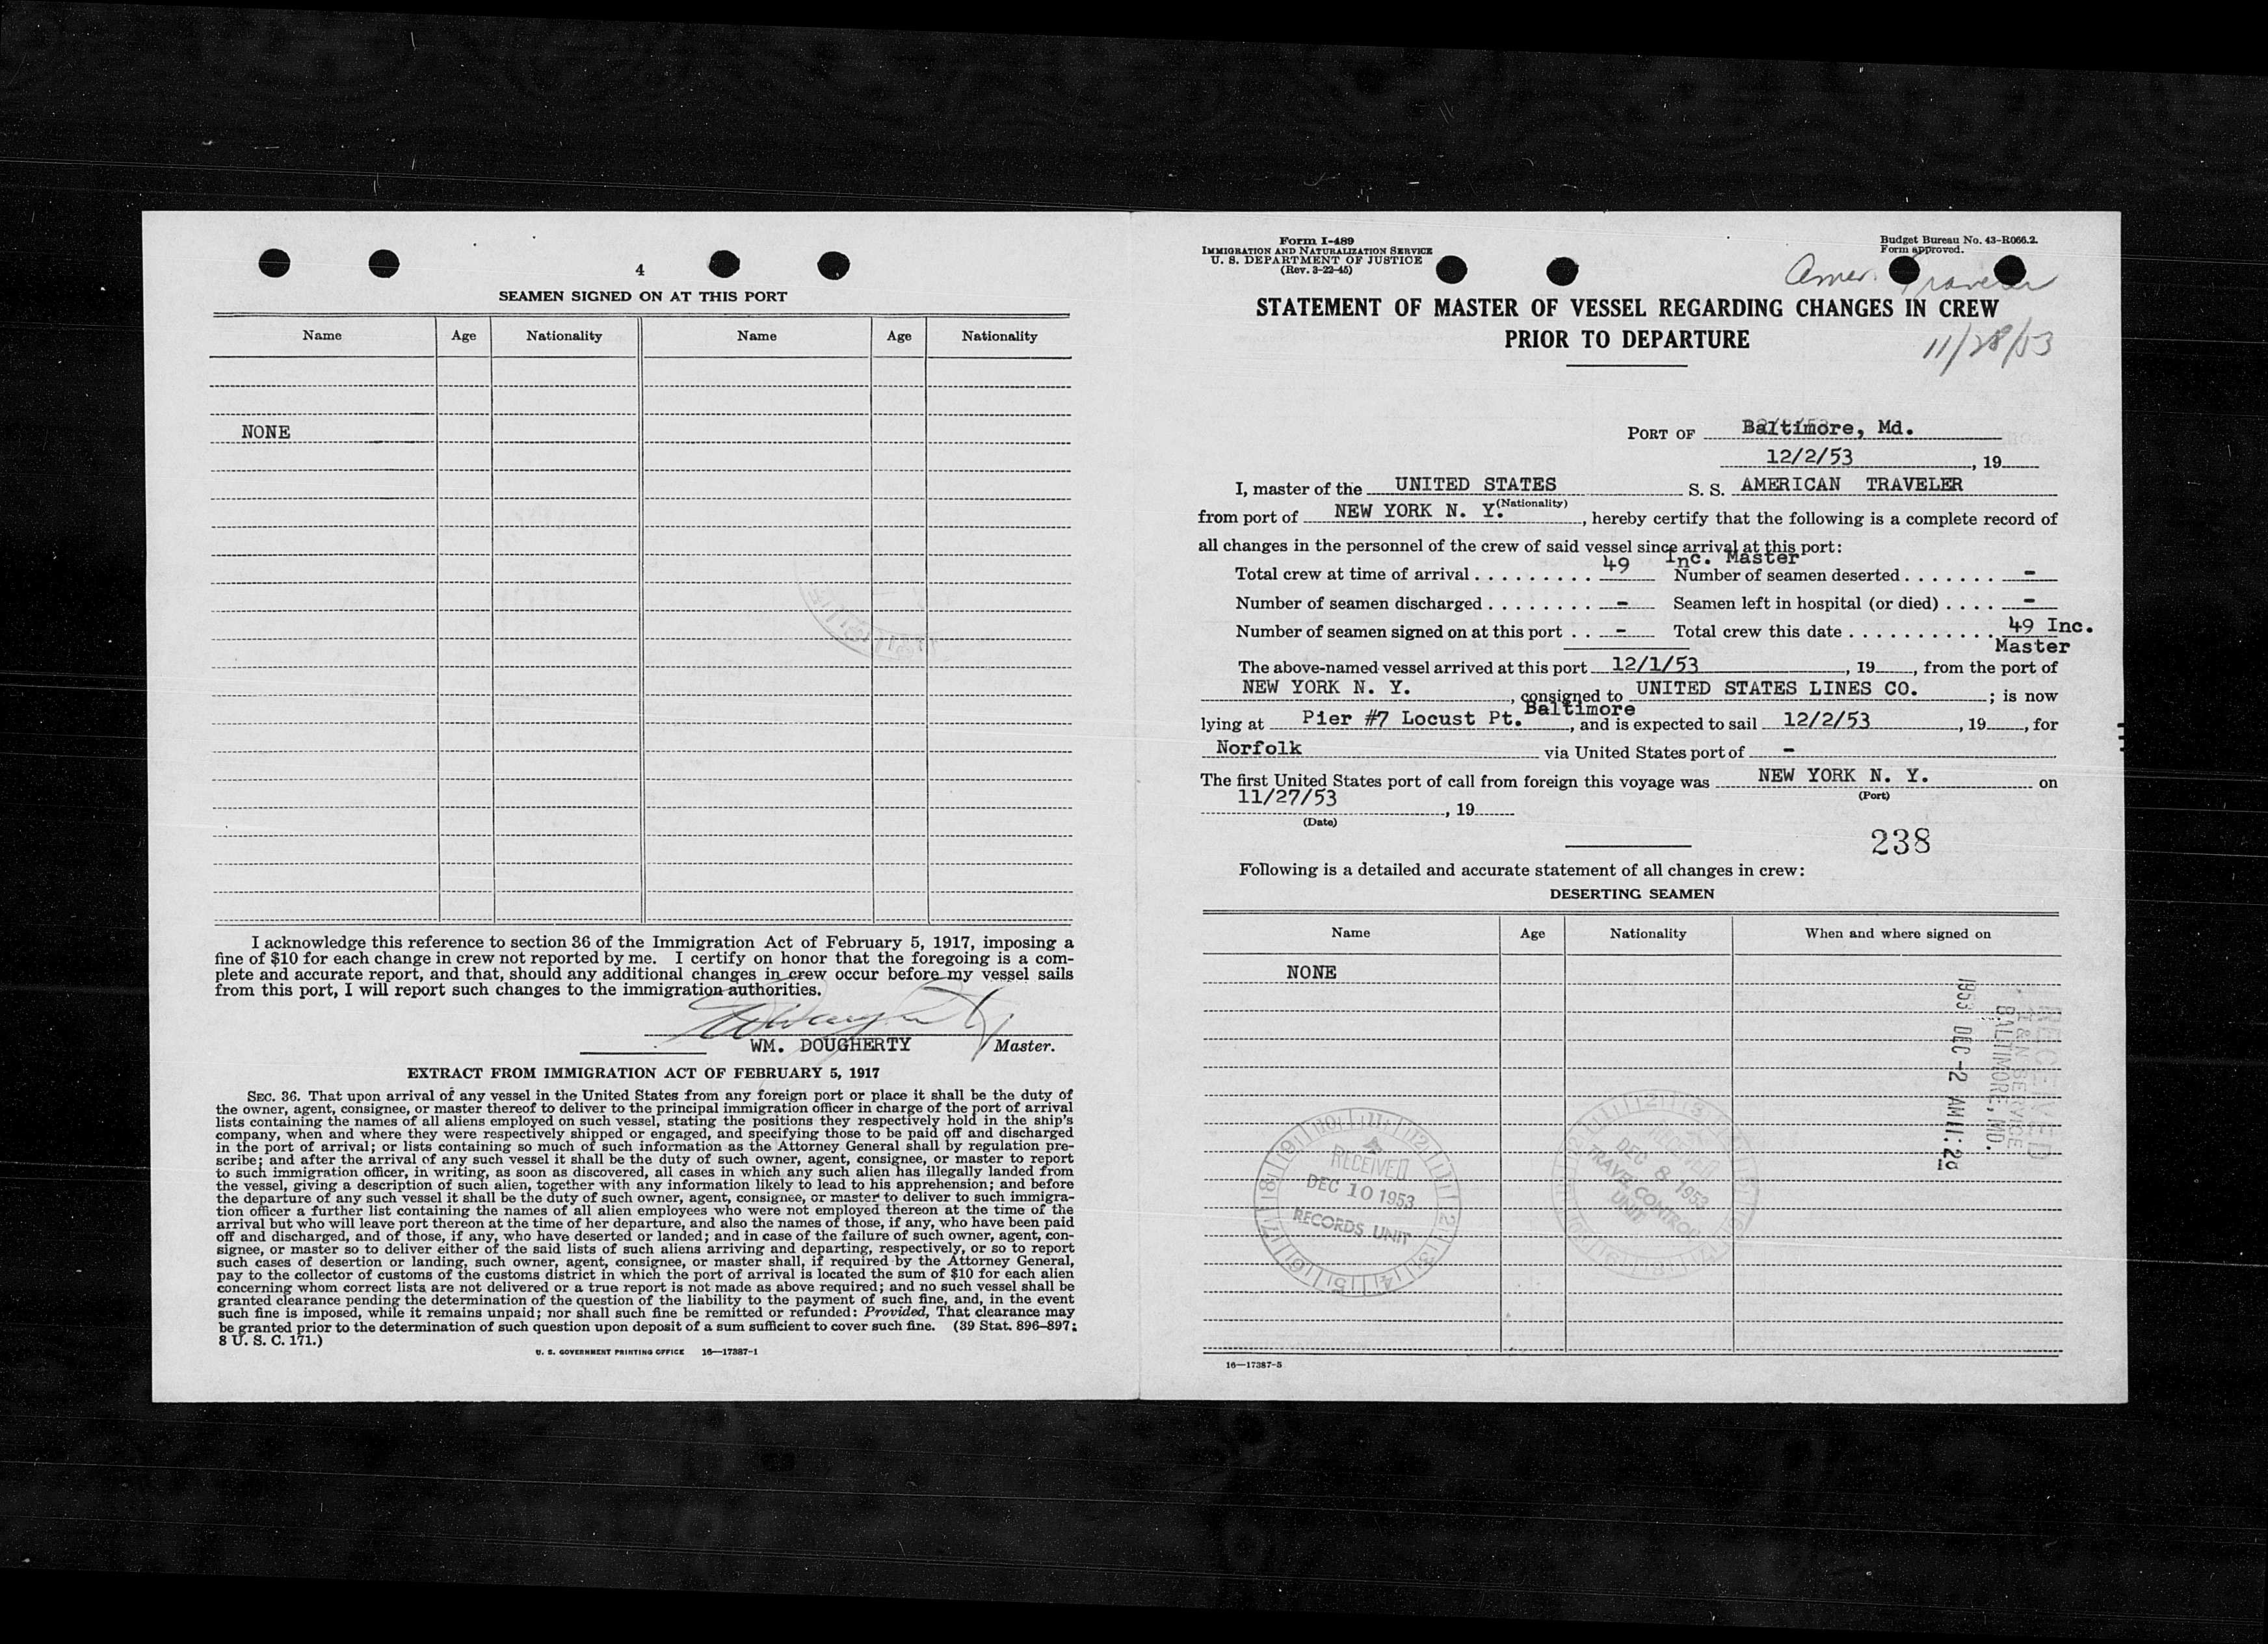 4
SEAMEN SIGNED ON AT THIS PORT
Name Age Nationality Name Age Nationality
NONE
I acknowledge this reference to section 36 of the Immigration Act of February 5, 1917, imposing a
fine of $10 for each change in crew not reported by me. I certify on honor that the foregoing is a com-
plete and accurate report, and that, should any additional changes in crew occur before my vessel sails
from this port, I will report such changes to the immigration authorities.
WM. DOUGHERTY Master.
EXTRACT FROM IMMIGRATION ACT OF FEBRUARY 5, 1917
SEC. 36. That upon arrival of any vessel in the United States from any foreign port or place it shall be the duty of
the owner, agent, consignee, or master thereof to deliver to the principal immigration officer in charge of the port of arrival
lists containing the names of all aliens employed on such vessel, stating the positions they respectively hold in the ship's
company, when and where they were respectively shipped or engaged, and specifying those to be paid off and discharged
in the port of arrival; or lists containing so much of such information as the Attorney General shall by regulation pre-
scribe; and after the arrival of any such vessel it shall be the duty of such owner, agent, consignee, or master to report
to such immigration officer, in writing, as soon as discovered, all cases in which any such alien has illegally landed from
the vessel, giving a description of such alien, together with any information likely to lead to his apprehension; and before
the departure of any such vessel it shall be the duty of such owner, agent, consignee, or master to deliver to such immigra-
tion officer a further list containing the names of all alien employees who were not employed thereon at the time of the
arrival but who will leave port thereon at the time of her departure, and also the names of those, if any, who have been paid
off and discharged, and of those, if any, who have deserted or landed; and in case of the failure of such owner, agent, con-
signee, or master so to deliver either of the said lists of such aliens arriving and departing, respectively, or so to report
such cases of desertion or landing, such owner, agent, consignee, or master shall, if required by the Attorney General,
pay to the collector of customs of the customs district in which the port of arrival is located the sum of $10 for each alien
concerning whom correct lists are not delivered or a true report is not made as above required; and no such vessel shall be
granted clearance pending the determination of the question of the liability to the payment of such fine, and, in the event
such fine is imposed, while it remains unpaid; nor shall such fine be remitted or refunded: Provided, That clearance may
be granted prior to the determination of such question upon deposit of a sum sufficient to cover such fine. (39 Stat. 896–897;
8 U. S. C. 171.)
U. S. GOVERNMENT PRINTING OFFICE 16—17387-1
Form I-489
IMMIGRATION AND NATURALIZATION SERVICE
U. S. DEPARTMENT OF JUSTICE
(Rev. 3-22-45)
Budget Bureau No. 43-R066.2.
Form approved.
Amer. Traveler
STATEMENT OF MASTER OF VESSEL REGARDING CHANGES IN CREW
PRIOR TO DEPARTURE
11/28/53
PORT OF Baltimore, Md.
12/2/53, 19
I, master of the UNITED STATES S. S. AMERICAN TRAVELER
(Nationality)
from port of NEW YORK N. Y., hereby certify that the following is a complete record of
all changes in the personnel of the crew of said vessel since arrival at this port:
Inc. Master
Total crew at time of arrival . . . . . . . . . 49 Number of seamen deserted . . . . . . . -
Number of seamen discharged . . . . . . . . - Seamen left in hospital (or died) . . . . -
Number of seamen signed on at this port . . - Total crew this date . . . . . . . . . . . . 49 Inc.
Master
The above-named vessel arrived at this port 12/1/53, 19, from the port of
NEW YORK N. Y., consigned to UNITED STATES LINES CO.; is now
lying at Pier #7 Locust Pt. Baltimore, and is expected to sail 12/2/53, 19, for
Norfolk via United States port of -
The first United States port of call from foreign this voyage was NEW YORK N. Y. on
(Port)
11/27/53, 19
(Date)
238
Following is a detailed and accurate statement of all changes in crew:
DESERTING SEAMEN
Name Age Nationality When and where signed on
NONE
RECEIVED
I & N SERVICE
BALTIMORE, MD.
1953 DEC -2 AM 11:28
RECEIVED
DEC 10 1953
RECORDS UNIT
RECEIVED
DEC 8 1953
TRAVEL CONTROL
UNIT
16—17387-5